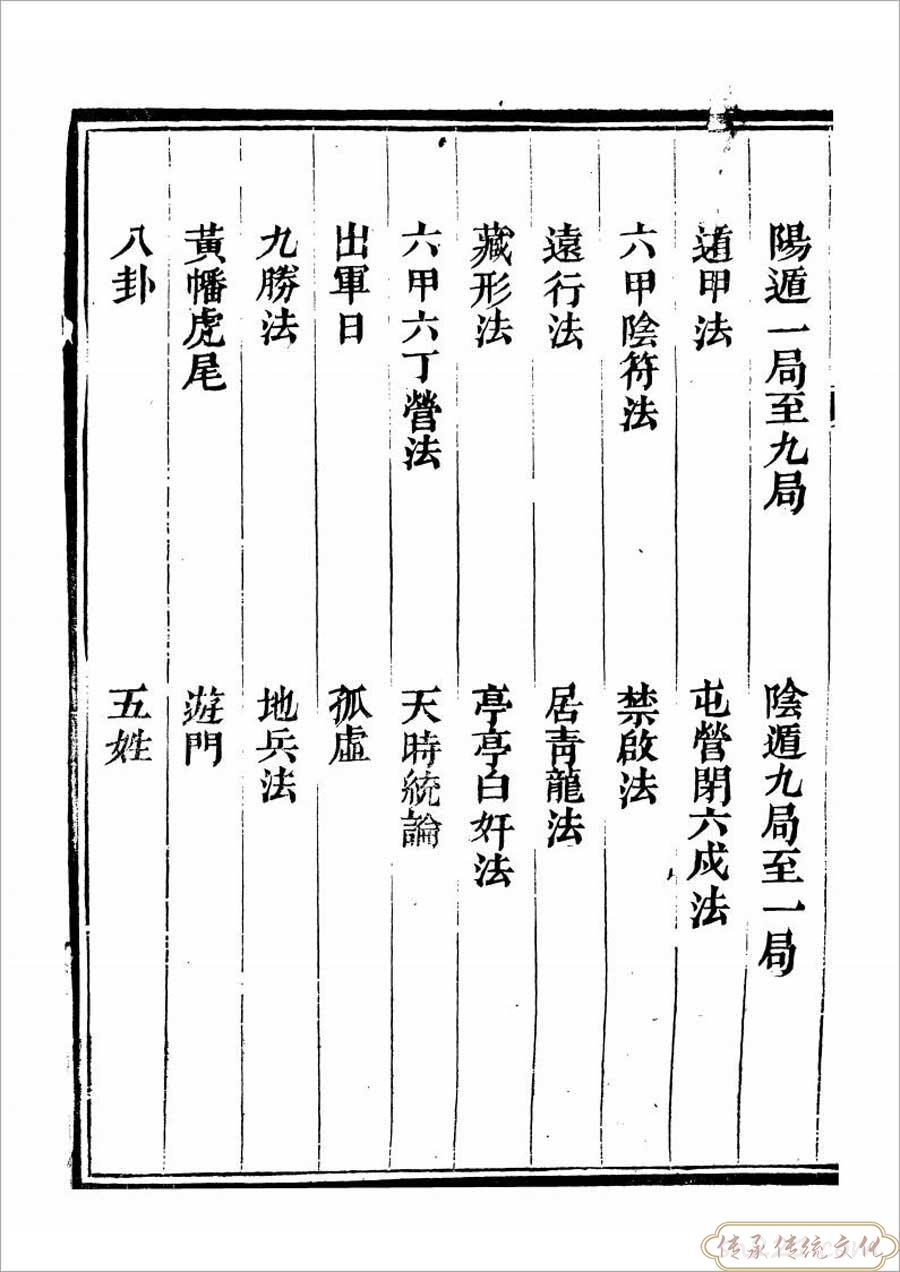 陽遁一局至九局　陰遁九局至一局
遁甲法　屯營閉六戍法
六甲陰符法　禁啟法
遠行法　居靑龍法
藏形法　亭亭白奸法
六甲六丁營法　天時統論
出軍日　孤虛
九勝法　地兵法
黃幡虎尾　遊門
八卦　五姓
传承传统文化